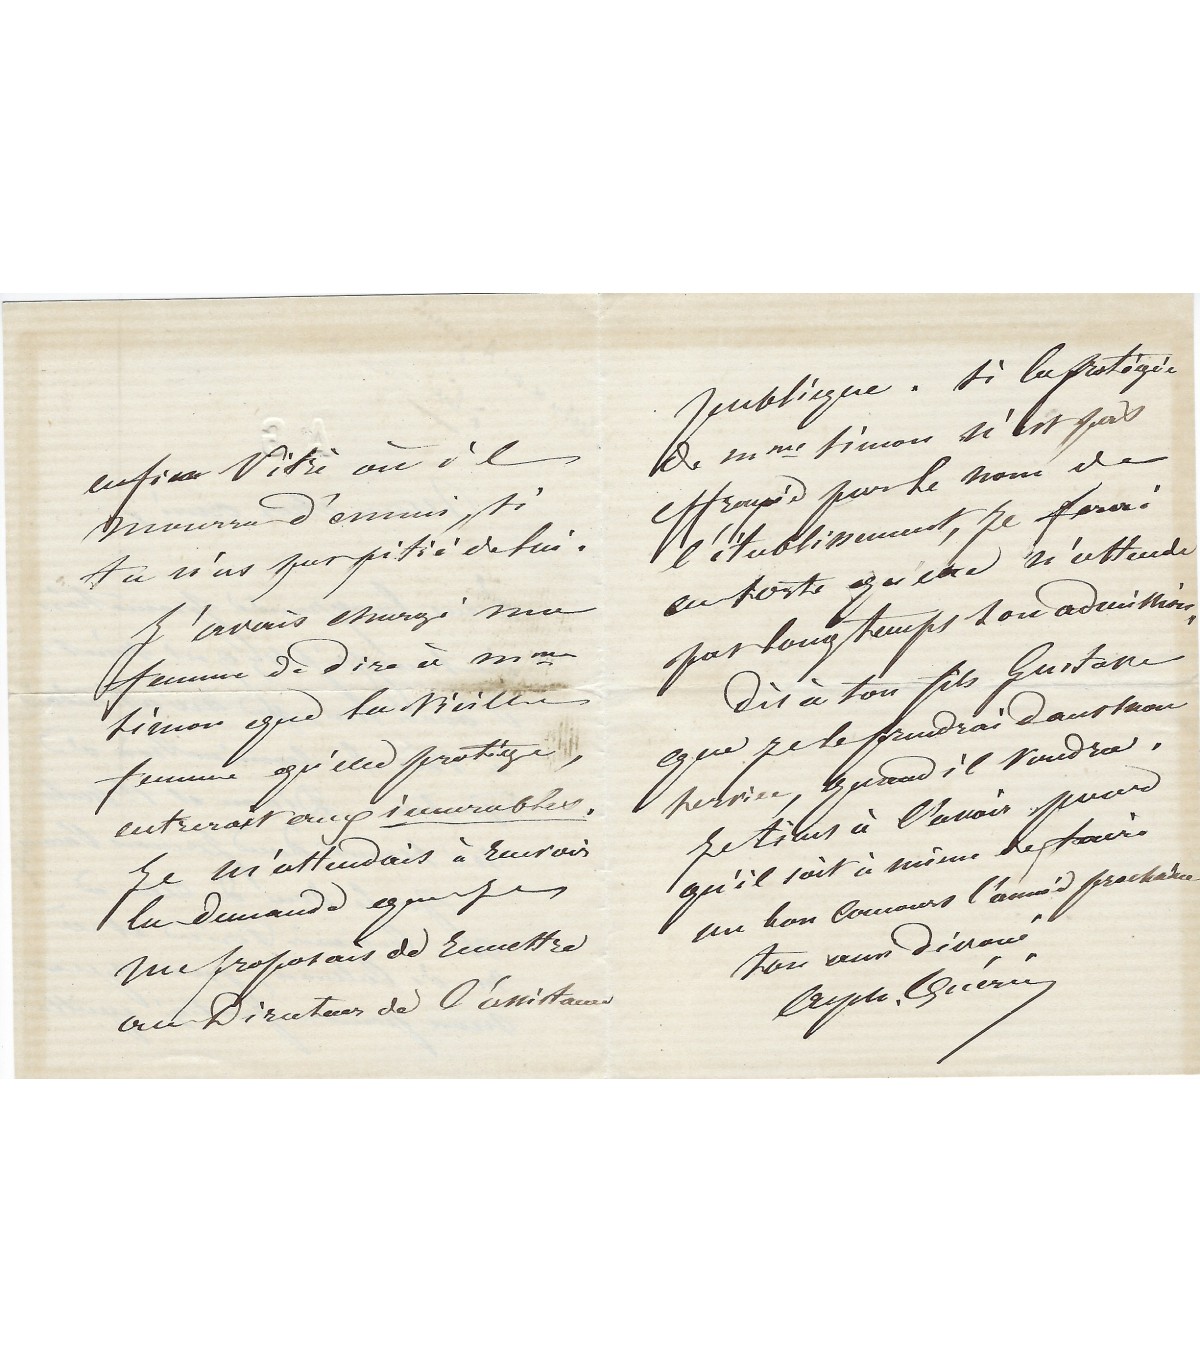 enfin Vitré où il
mourra d'ennui, si
tu n'as pas pitié de lui.
J'avais chargé ma
femme de dire à Mme
Simon que la vieille
femme qu'elle protège,
entrerait aux incurables.
Je m'attendais à recevoir
la demande que je
me proposais de remettre
au Directeur de l'assistance
publique. Si la protégée
de Mme Simon n'est pas
effrayée par le nom de
l'établissement, je ferai
en sorte qu'elle n'attende
pas longtemps son admission.
Dis à ton fils Gustave
que je le prendrai dans mon
service, quand il voudra.
Je tiens à l'avoir pour
qu'il soit à même de faire
un bon concours l'année prochaine
ton ami dévoué
Alph. Guérin